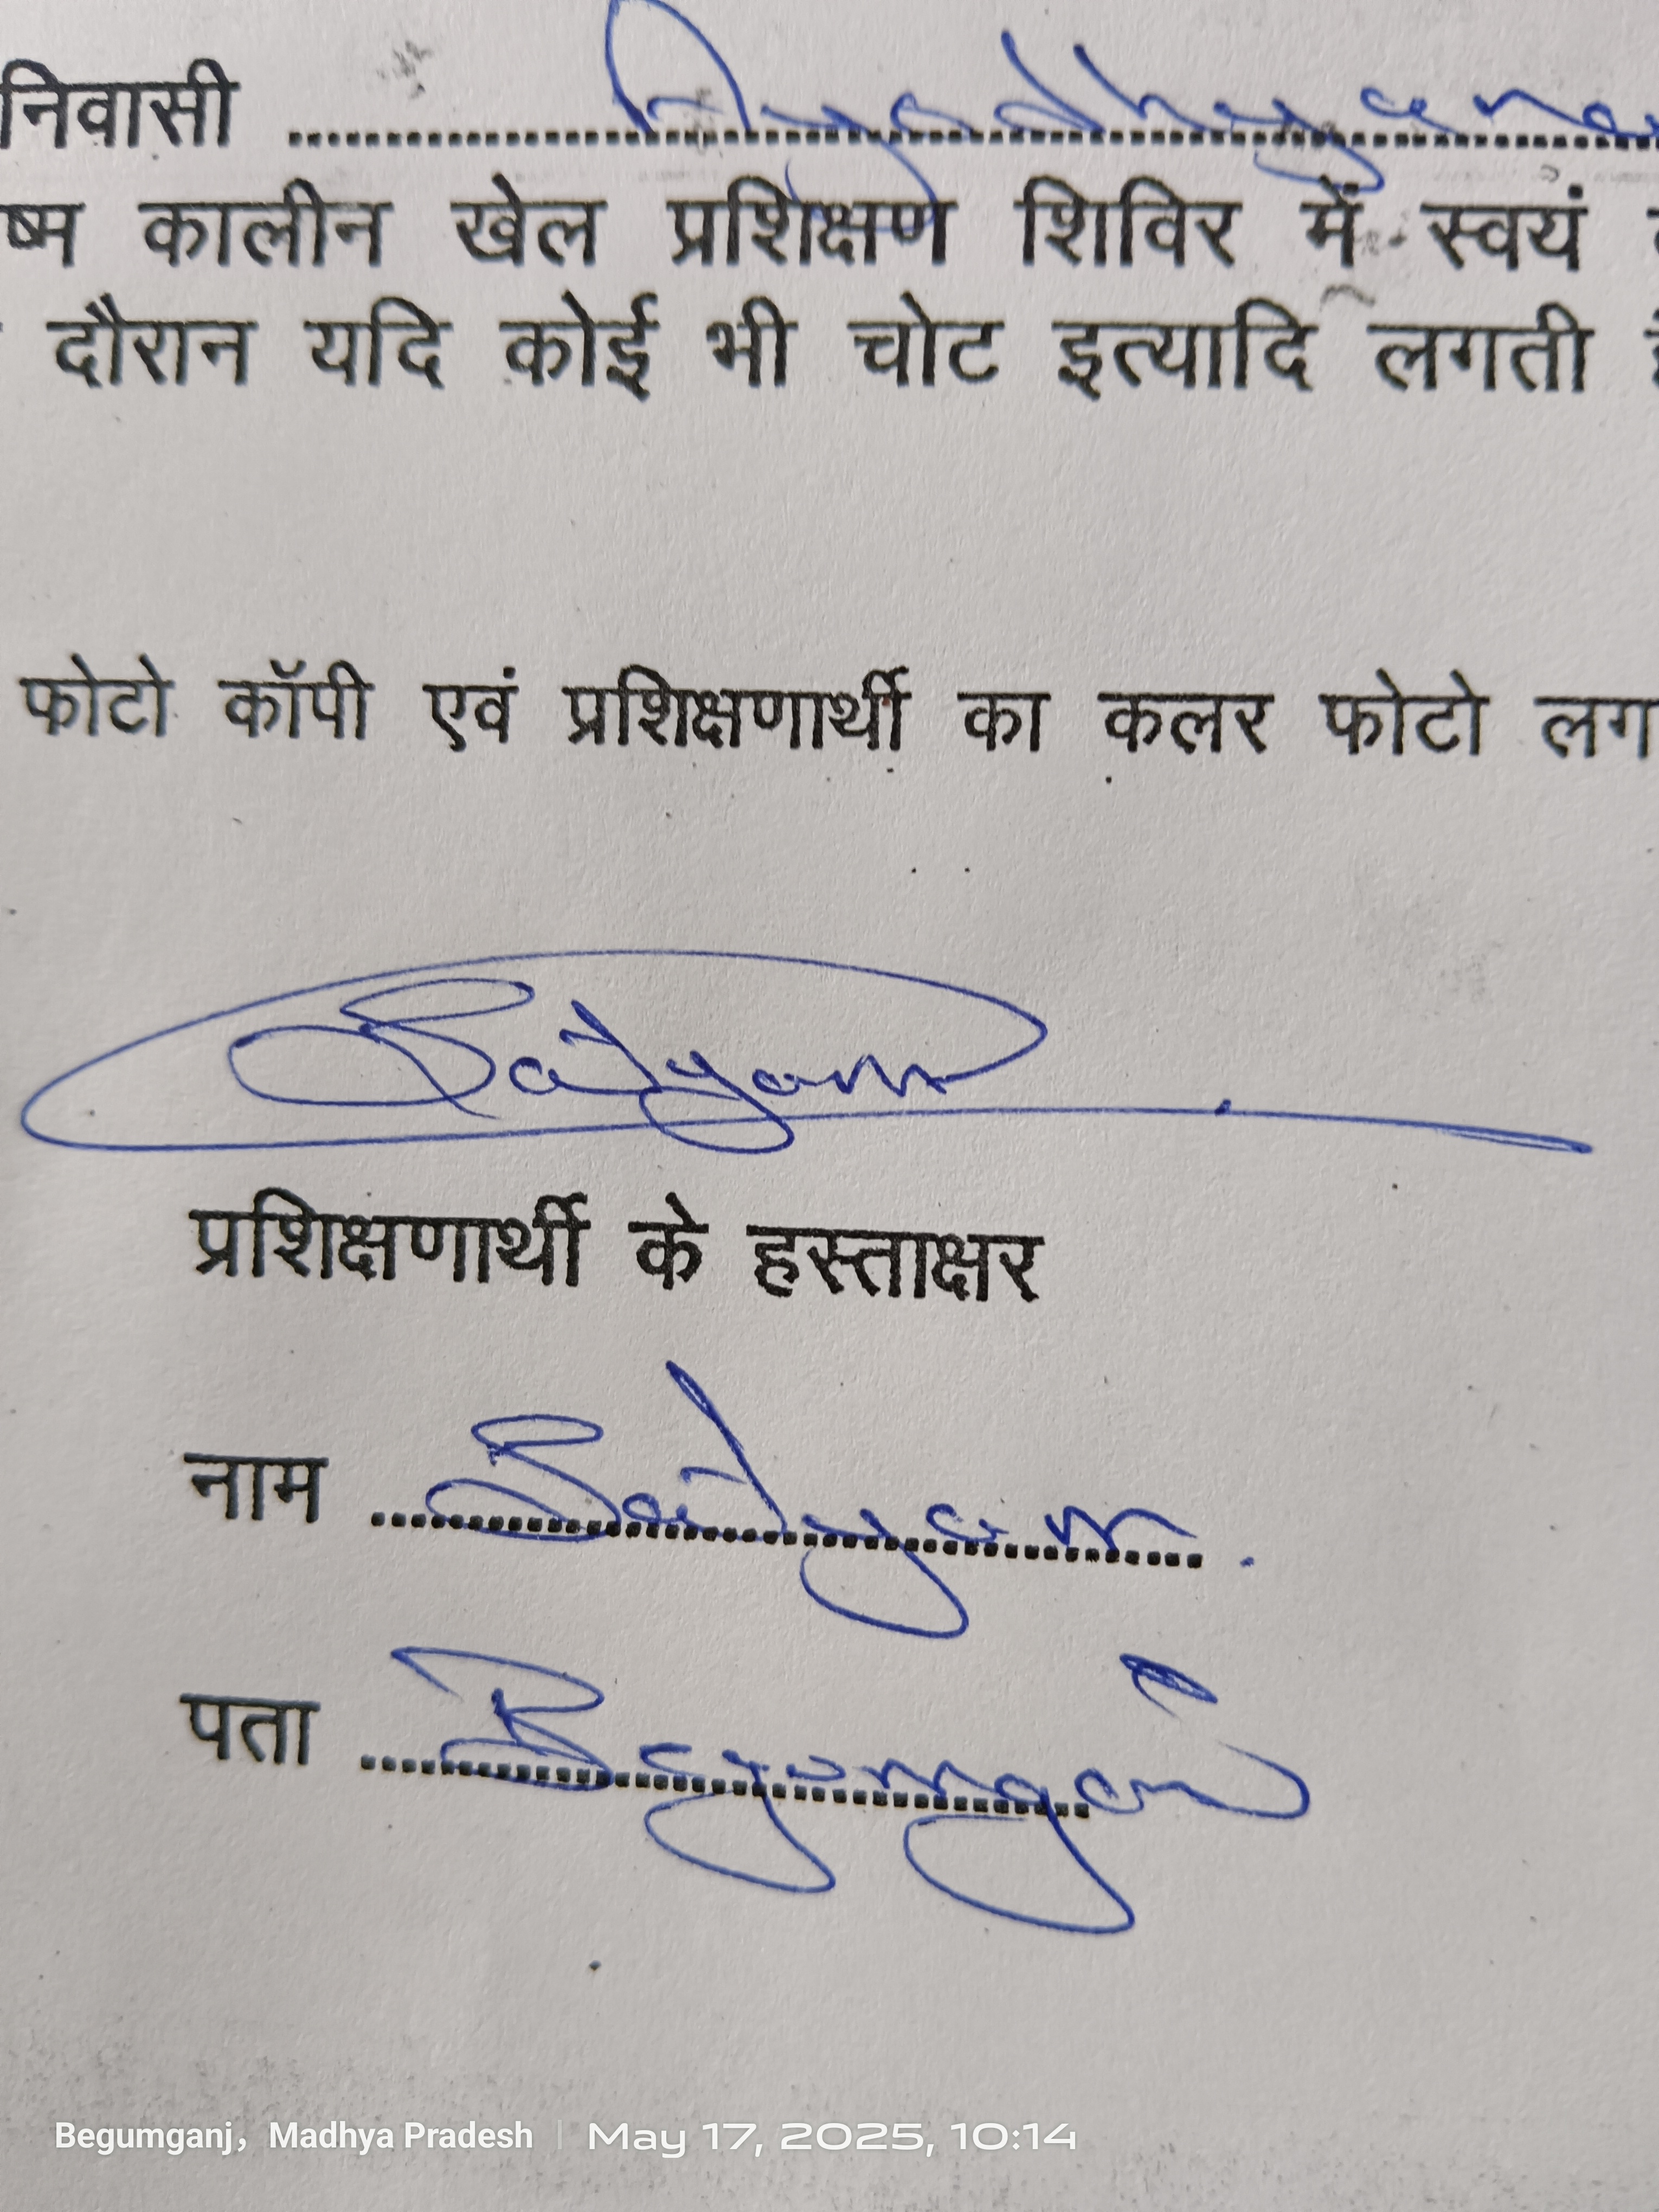 निवासी
ष्म कालीन खेल प्रशिक्षण शिविर में स्वयं
दौरान यदि कोई भी चोट इत्यादि लगती
फोटो कॉपी एवं प्रशिक्षणार्थी का कलर फोटो लग
Satyam
प्रशिक्षणार्थी के हस्ताक्षर
नाम Satyam.
पता Begumganj
Begumganj, Madhya Pradesh | May 17, 2025, 10:14